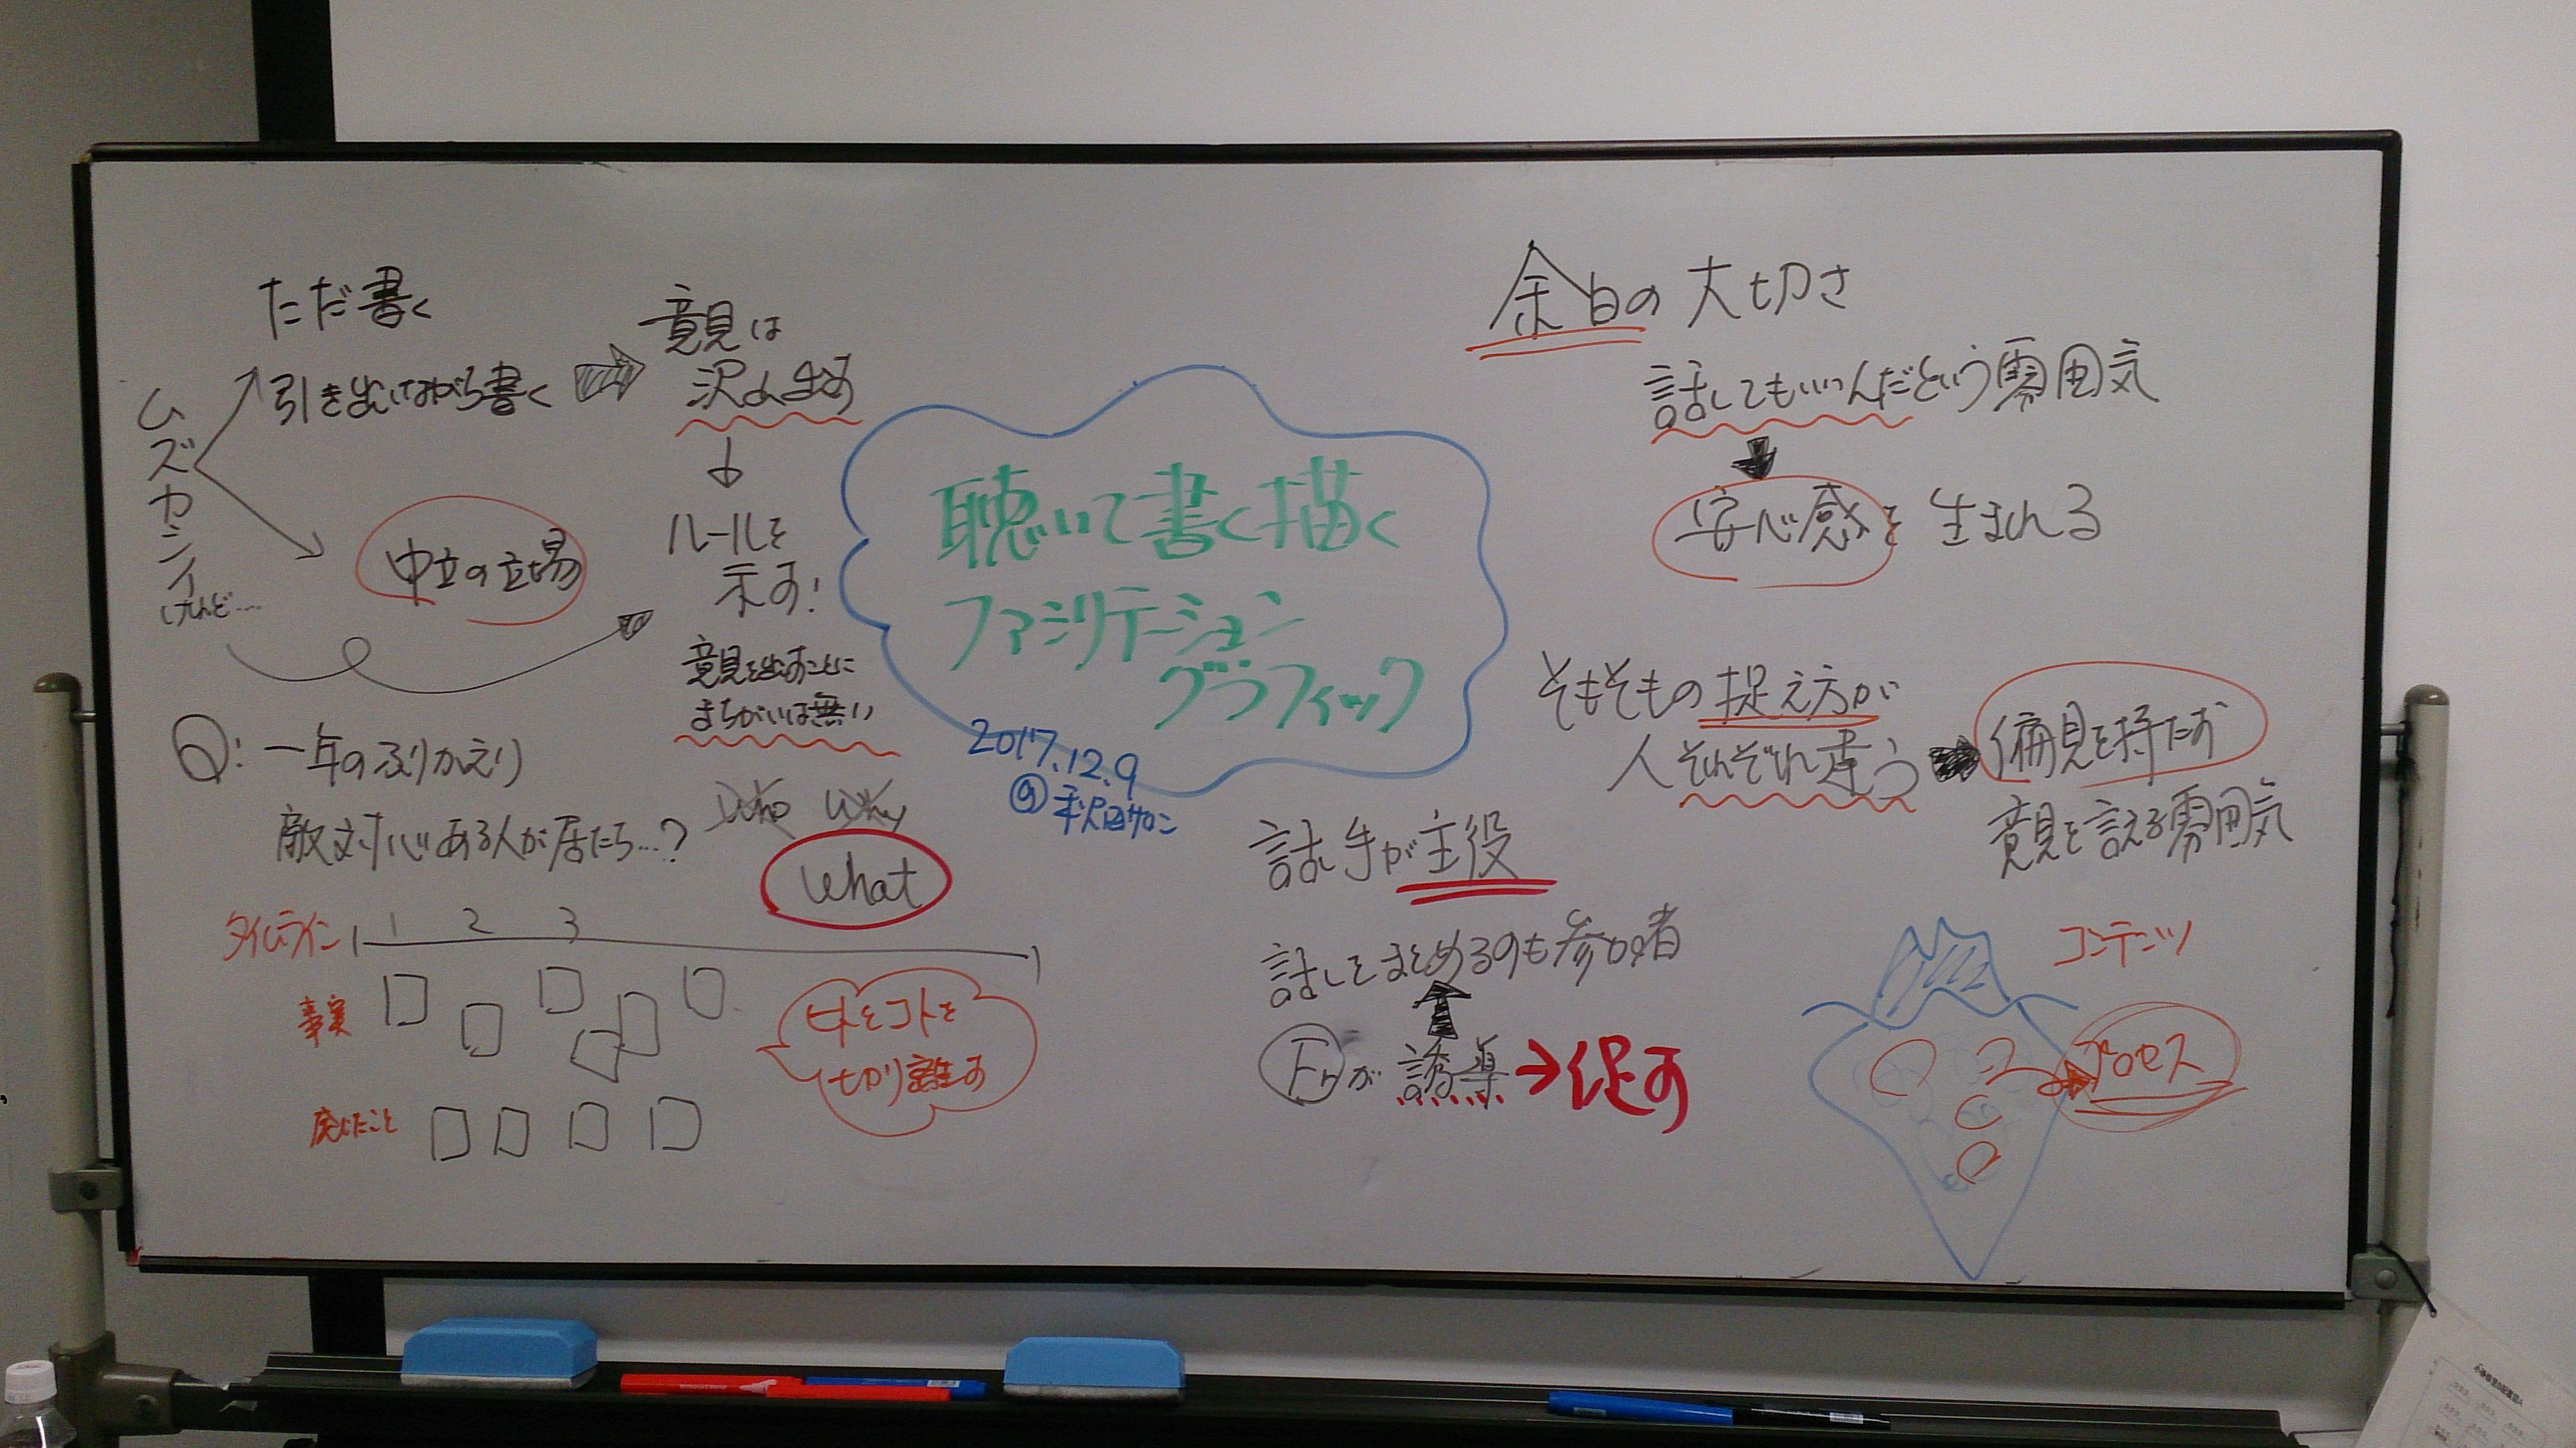 ただ書く
引き出しながら書く
ムズカシイ
けんど…
中立の立場
意見は
沢山出る
ルールを
示す!
意見を出すことに
まちがいは無い
Q: 一年のふりかえり
敵対心ある人が居たら…?
Who Why
What
タイムライン 1 2 3
事実
感じたこと
ヒトとコトを
切り離す
聴いて書く描く
ファシリテーション
グラフィック
2017.12.9
余白の大切さ
話してもいいんだという雰囲気
安心感を生まれる
そもそもの捉え方が
人それぞれ違う
偏見を持たす
意見を言える雰囲気
話し手が主役
話してまとめるのも参加者
Frが誘導→促す
コンテンツ
プロセス